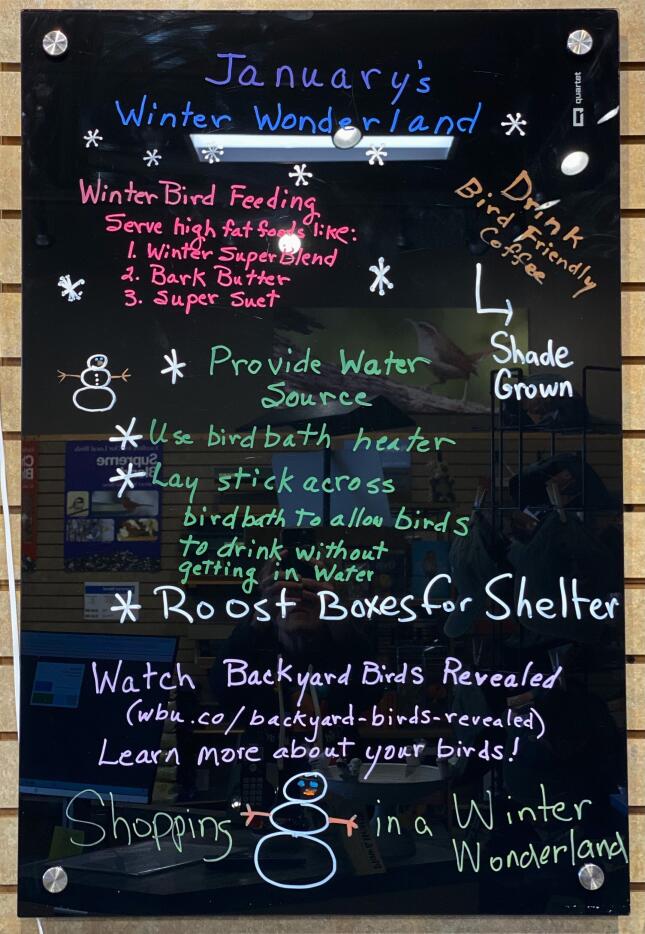 January's
Winter Wonderland
quartet
Winter Bird Feeding
Serve high fat foods like:
1. Winter SuperBlend
2. Bark Butter
3. Super Suet
Drink
Bird Friendly
Coffee
Shade
Grown
* Provide Water
Source
* Use birdbath heater
* Lay stick across
birdbath to allow birds
to drink without
getting in water
* Roost Boxes for Shelter
Watch Backyard Birds Revealed
(wbu.co/backyard-birds-revealed)
Learn more about your birds!
Shopping in a Winter
Wonderland
Supreme